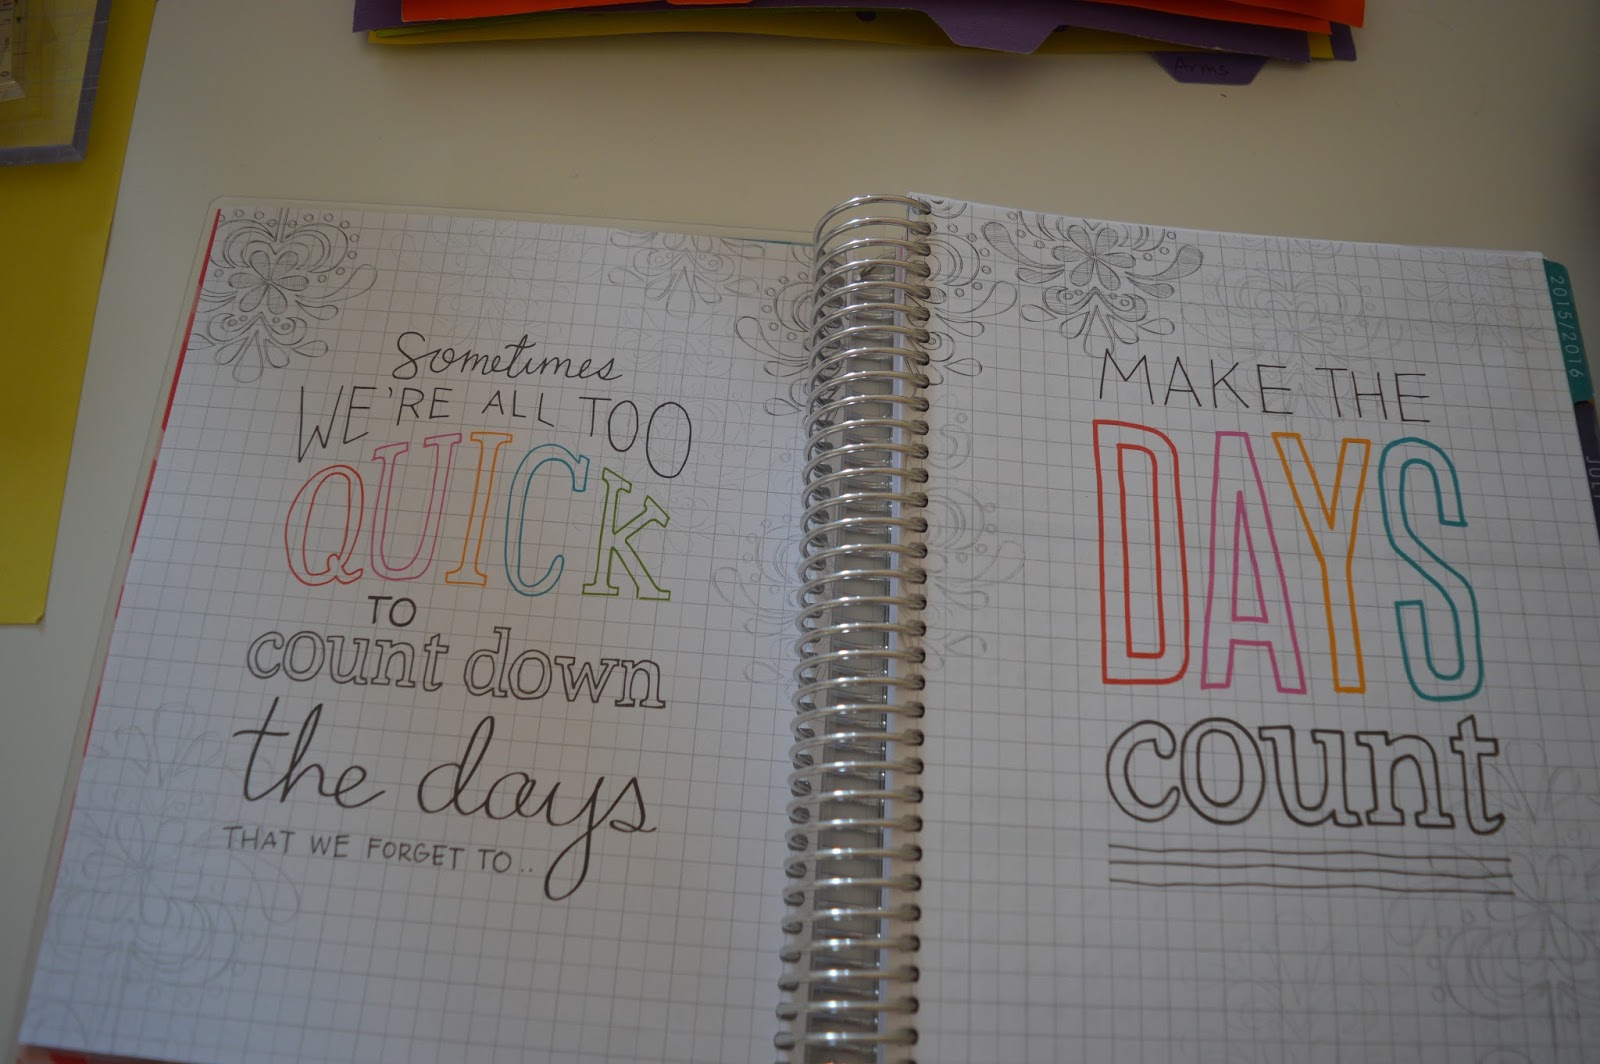 Arms
Sometimes
WE'RE ALL TOO
QUICK
TO
count down
the days
THAT WE FORGET TO..
MAKE THE
DAYS
count
2015/2016